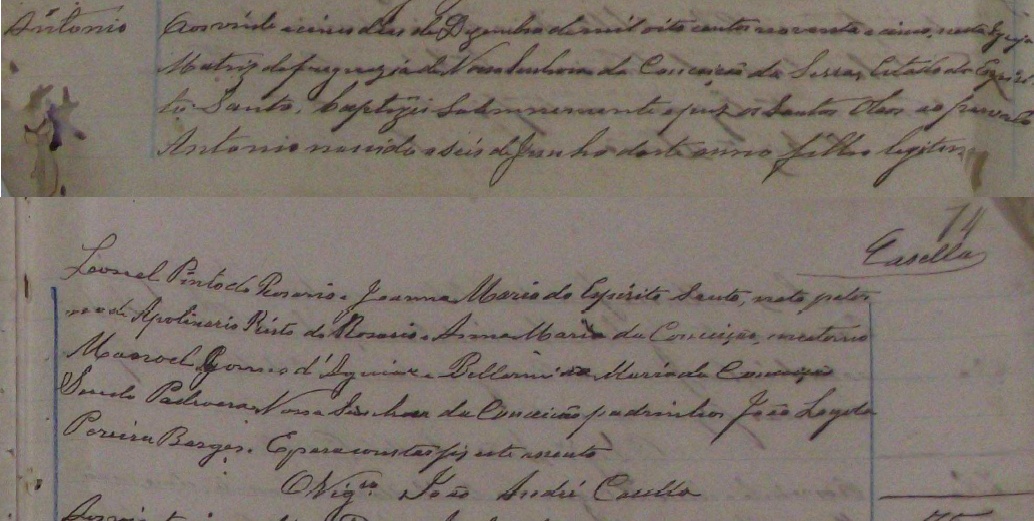 Antonio
Aos vinte e cinco dias de Dezembro de mil oito centos noventa e cinco, nesta Egreja
Matriz de freguezia de Nossa Senhora da Conceição da Serra, Estado do Espiri
to-Santo, baptizei solemnemente e puz os Santos Oleos ao parvulo
Antonio nascido a seis de Junho deste anno filho legitimo
74
Casella
Leonel Pinto do Rosario e Joanna Maria do Espirito Santo, neto pater
no de Apolinario Pinto do Rosario e Anna Maria da Conceição, materno
Manoel Gomes d'Aguiar e Bellarmina Maria da Conceição
Sendo Padroeira Nossa Senhora da Conceição padrinhos João Loyola
Pereira Borges. E para constar fiz este assento
O Vigrº João André Casella